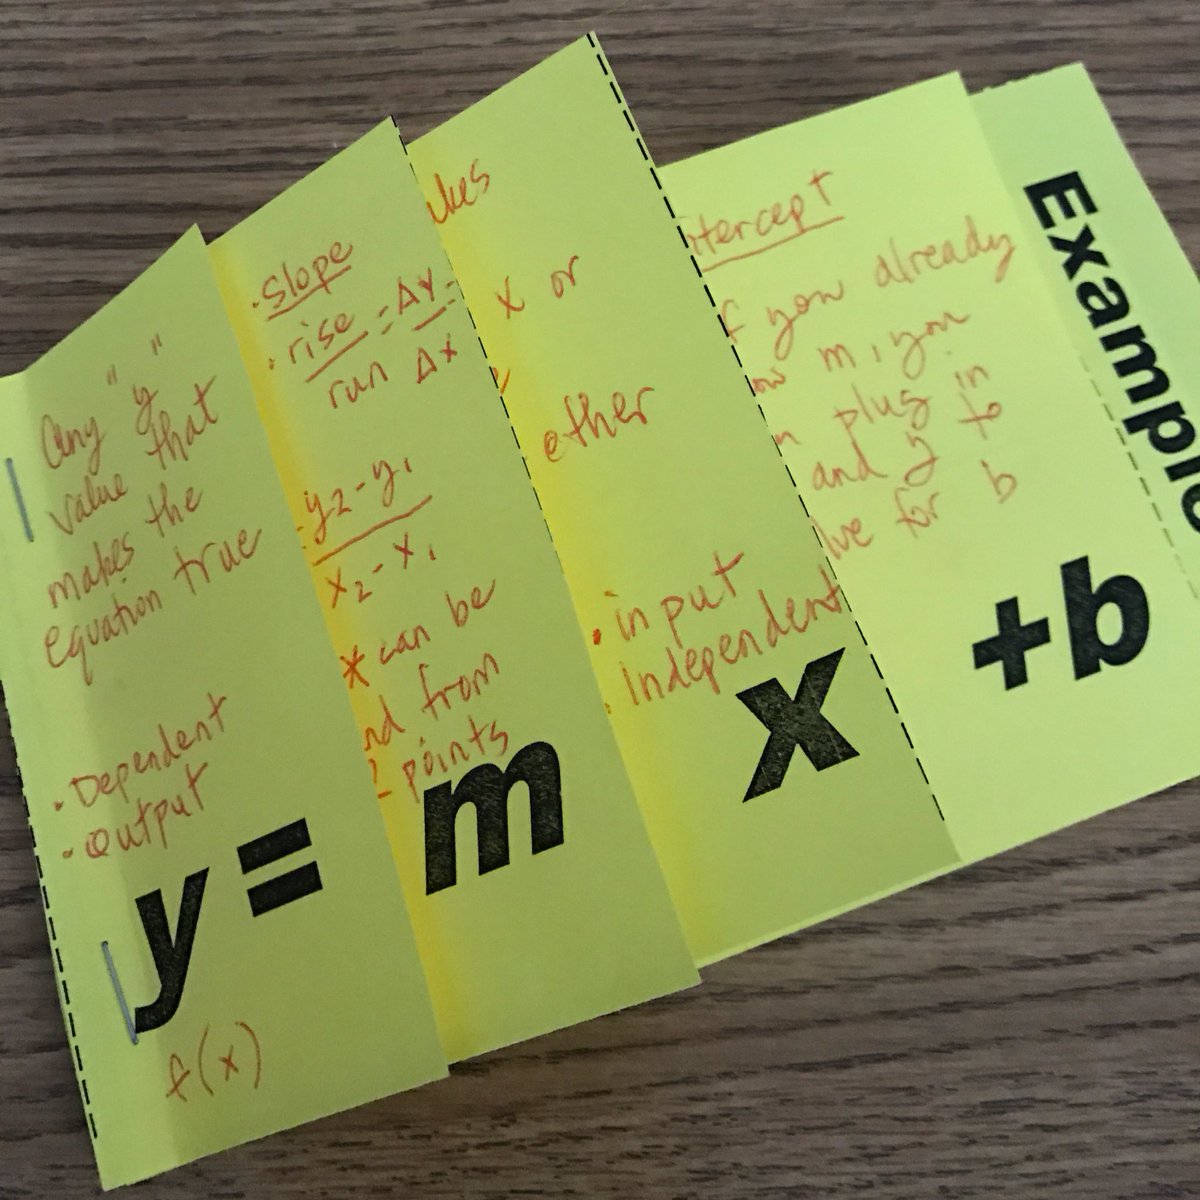 any "y"
value that
makes the
equation true
• Dependent
• output
y =
f(x)
• Slope
• rise = ΔY =
run ΔX
y₂ - y₁
x₂ - x₁
* can be
from
2 points
m
x or
ether
• input
• Independent
x
you already
m, you
plug in
and y to
for b
+b